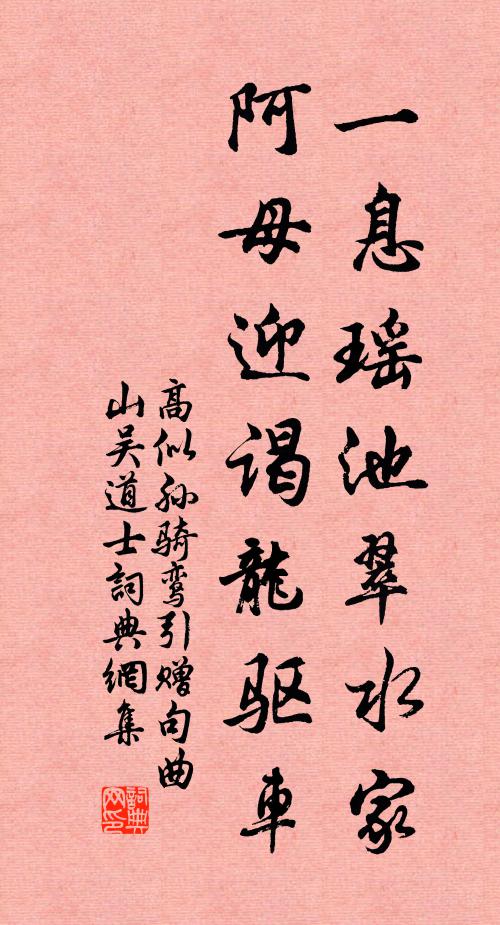 一息瑶池翠水家
阿母迎谒龍驱車
高似孙骑鸾引赠句曲
山吴道士詞典網集
詞典网印